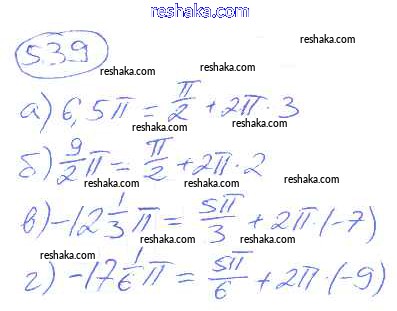 reshaka.com
539
reshaka.com
reshaka.com
reshaka.com
а) 6,5π = π/2 + 2π · 3
reshaka.com
reshaka.com
б) 9/2 π = π/2 + 2π · 2
reshaka.com
reshaka.com
reshaka.com
в) -12 1/3 π = 5π/3 + 2π · (-7)
reshaka.com
reshaka.com
reshaka.com
г) -17 1/6 π = 5π/6 + 2π · (-9)
reshaka.com
reshaka.com